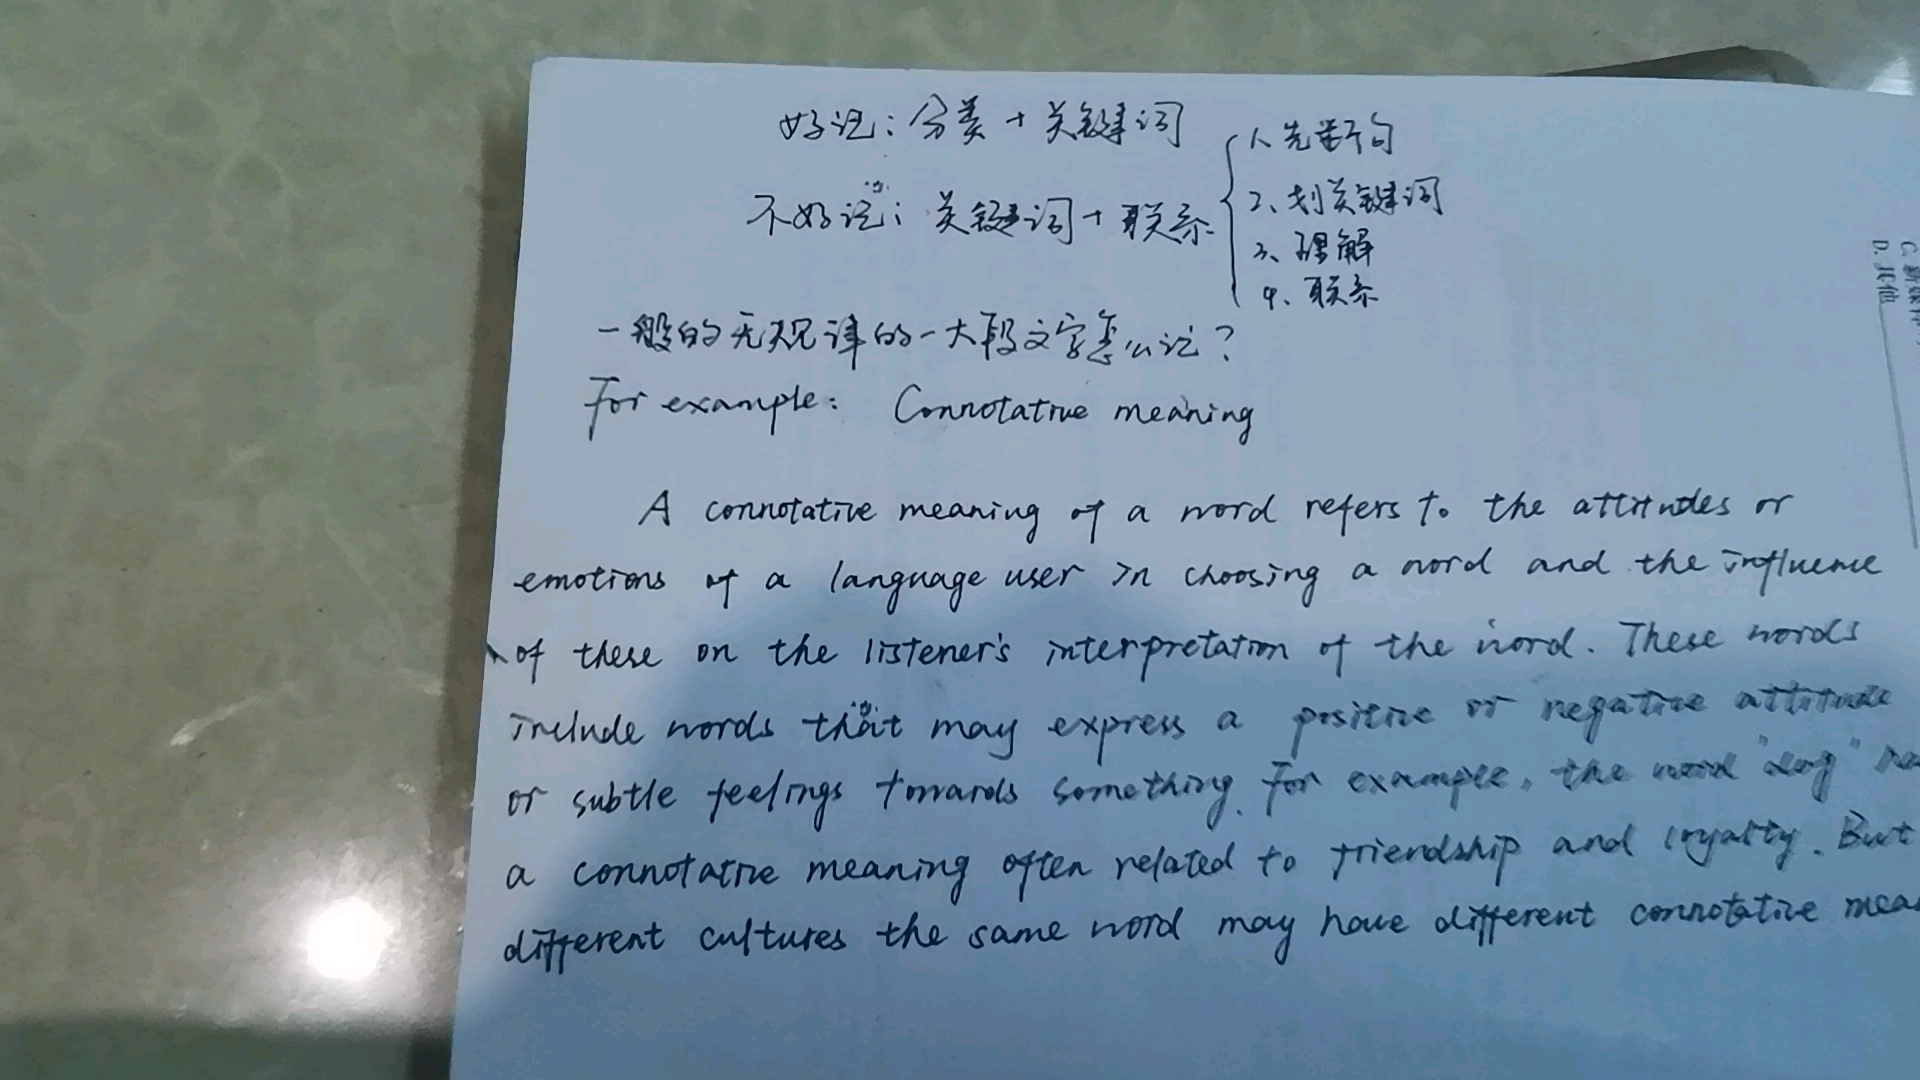 好记：分类 + 关键词
不好记：关键词 + 联系
1、先断句
2、划关键词
3、理解
4、联系
一般的无规律的一大段文字怎么记？
For example: Connotative meaning
A connotative meaning of a word refers to the attitudes or
emotions of a language user in choosing a word and the influence
of these on the listener's interpretation of the word. These words
include words that may express a positive or negative attitude
or subtle feelings towards something. For example, the word "dog"
a connotative meaning often related to friendship and loyalty. But
different cultures the same word may have different connotative
D. 其他